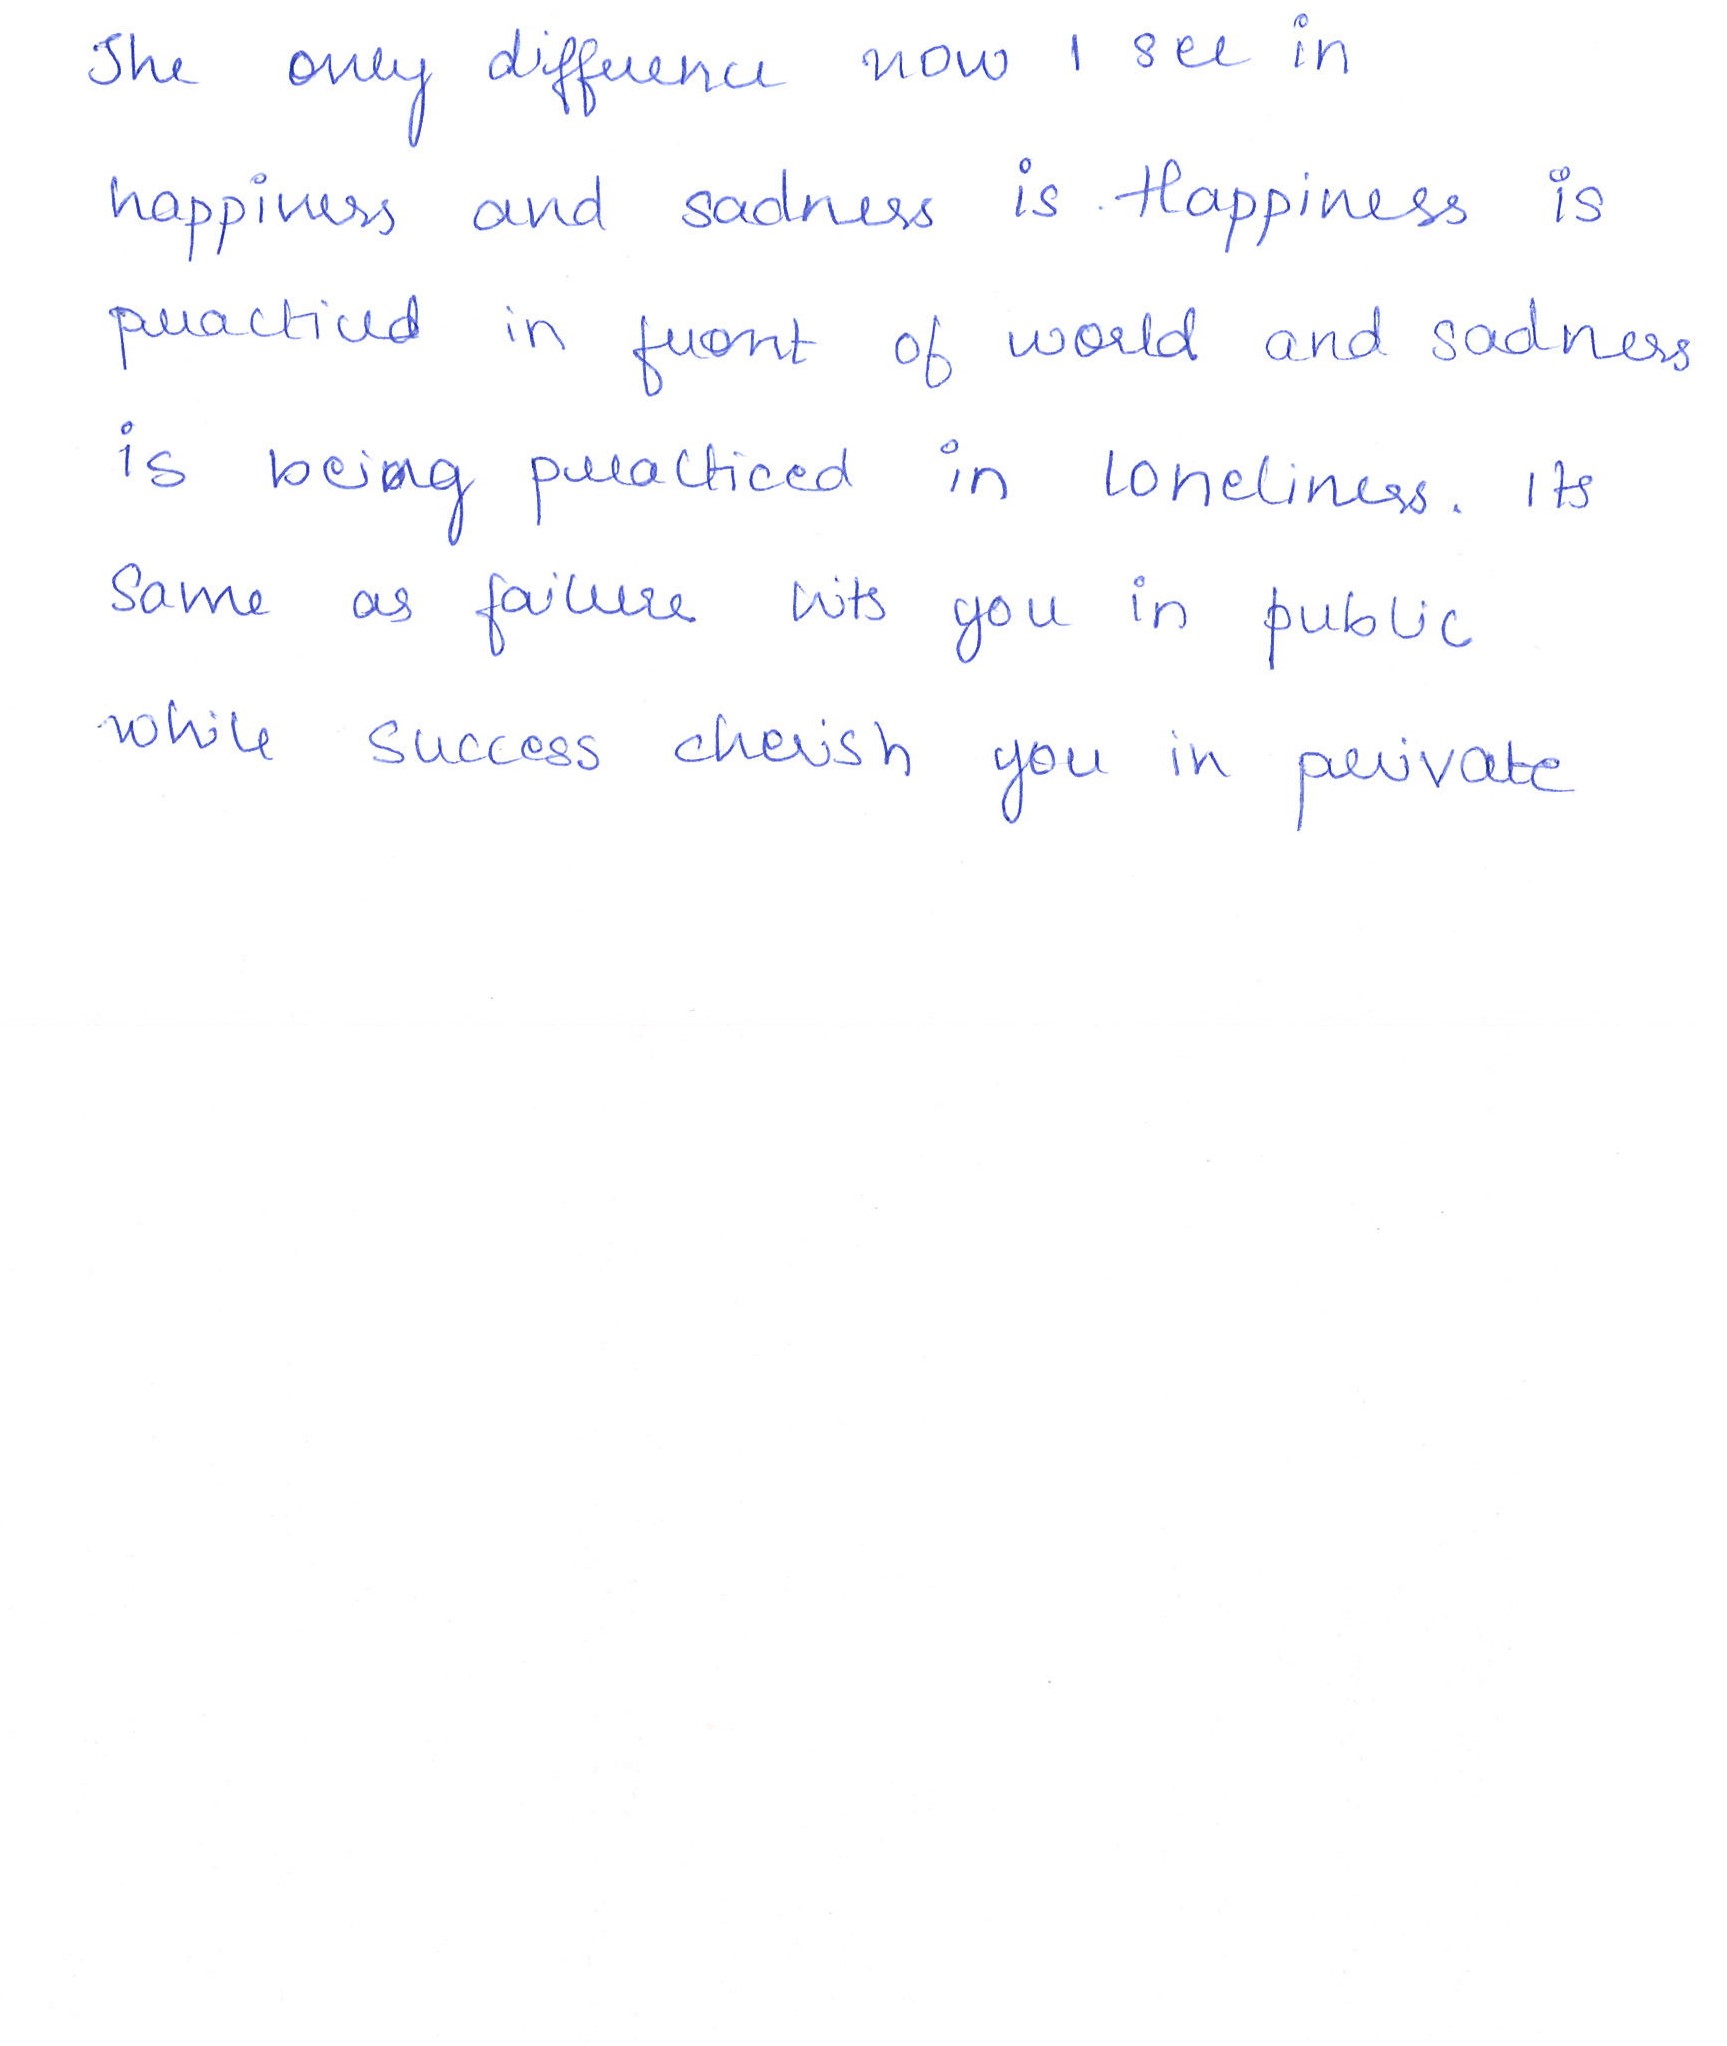 The only difference now I see in
happiness and sadness is Happiness is
practiced in front of world and sadness
is being practiced in loneliness. Its
Same as failure hits you in public
while success cherish you in private